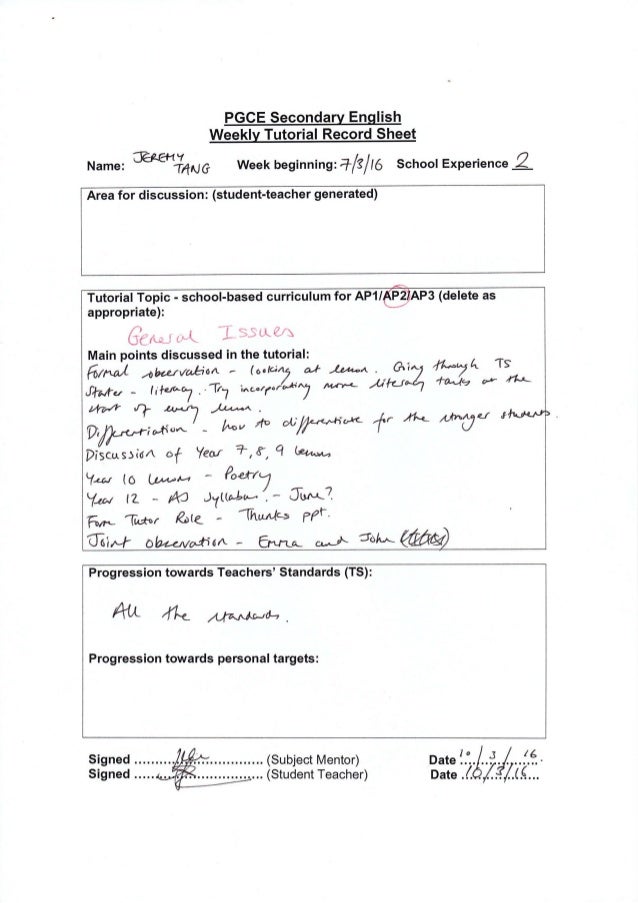 PGCE Secondary English
Weekly Tutorial Record Sheet
Name: JEREMY TANG Week beginning: 7/3/16 School Experience 2
Area for discussion: (student-teacher generated)
Tutorial Topic - school-based curriculum for AP1/AP2/AP3 (delete as
appropriate):
General Issues
Main points discussed in the tutorial:
Formal observation - looking at lesson. Going through TS
Starter - literacy. Try incorporating more literacy tasks at the
start of every lesson.
Differentiation - how to differentiate for the stronger students.
Discussion of Year 7, 8, 9 lessons
Year 10 lessons - Poetry
Year 12 - AS Syllabus. - June?
Form Tutor Role - Thunks ppt.
Joint observation - Emma and John
Progression towards Teachers' Standards (TS):
All the standards.
Progression towards personal targets:
Signed .................. (Subject Mentor) Date 10/3/16.
Signed .................. (Student Teacher) Date 10/3/16...